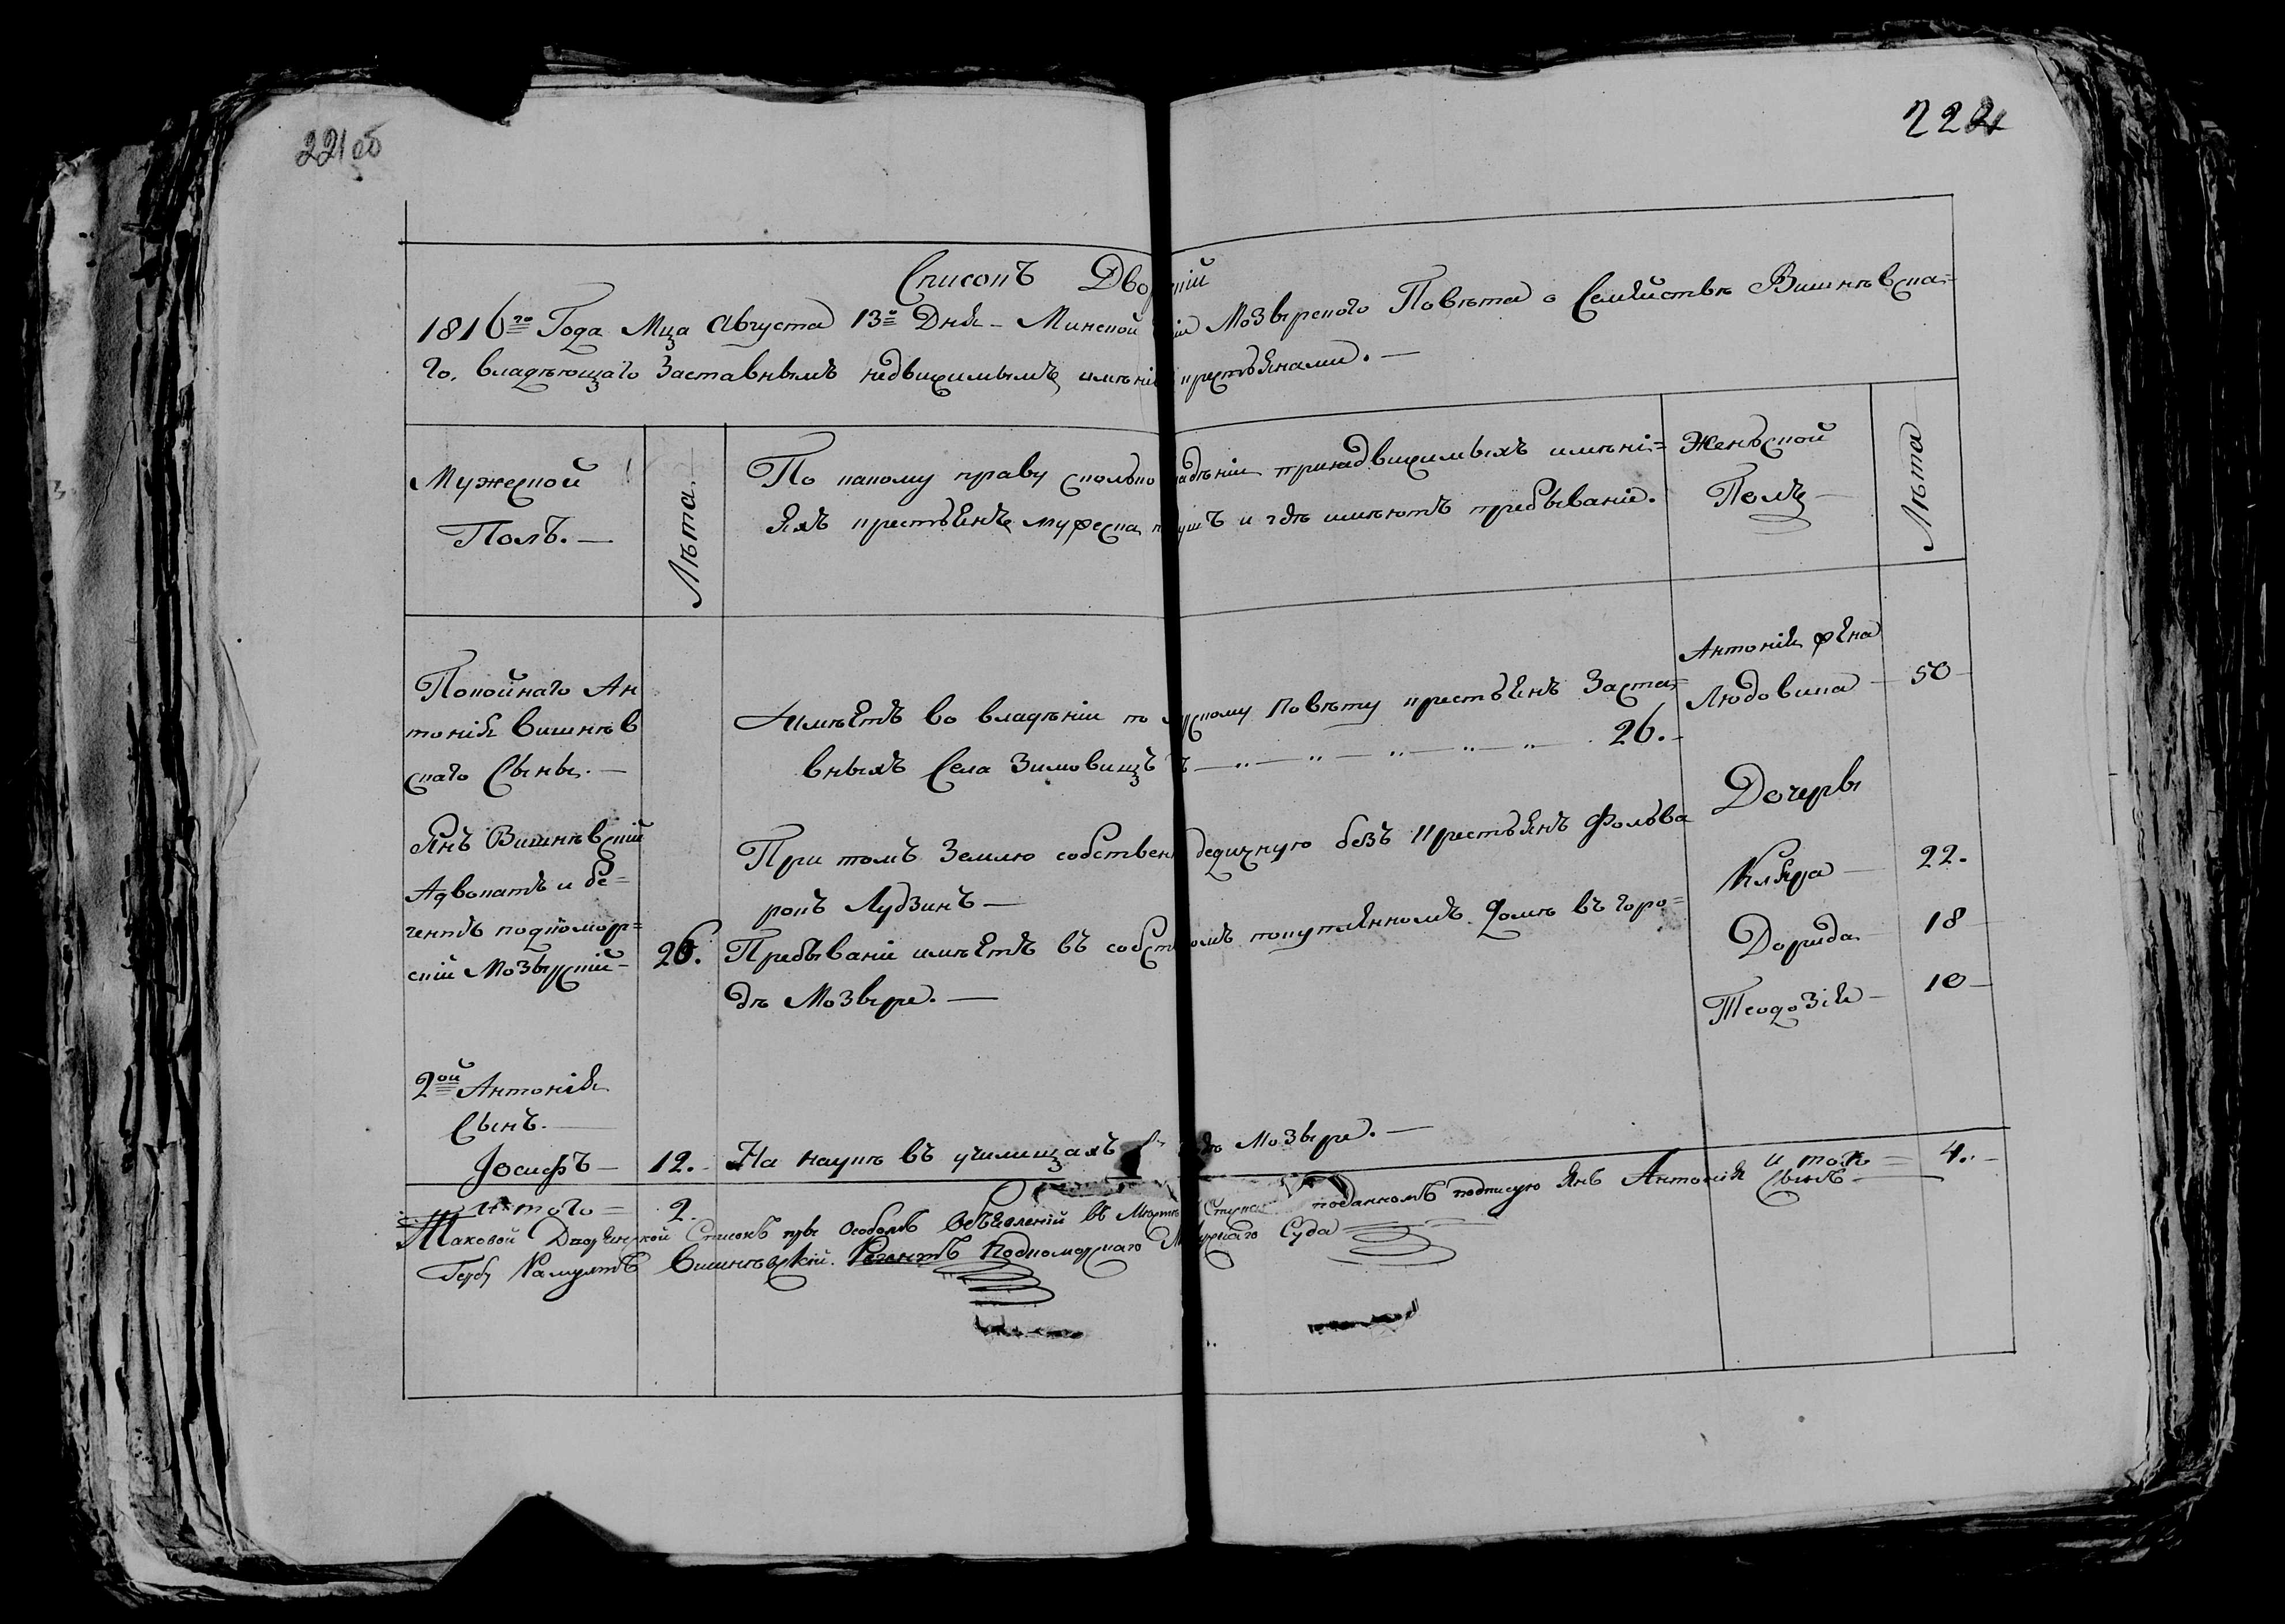 221об
222
Списокъ Дво скій
1816го Года Мца Августа 13о Дня – Минской ніи Мозырского Повѣта о Семѣйствѣ Вишнѣвска=
го, владѣющаго Заставнымъ недвижимымъ имѣні крестьянами. –
Мужеской
Полъ. –
Лѣта. –
По какому праву сколько адѣніи принедвижимыхъ имѣні=
яхъ крестьянъ мужеска душъ и гдѣ имѣютъ пребываніе.
Женьской
Полъ –
Лѣта
Покойнаго Ан
тонія Вишнѣв
скаго Сыны. –
Янъ Вишнѣвскій
Адвокатъ и Ре=
гентъ подкомор=
скій Мозырскій –
26.
Имѣетъ во владѣніи по рскому Повѣту крестьянъ Заста=
вныхъ Села Зимовищъ – „ – „ – „ – „ – „ 26. –
При томъ Землю собствен дедичную безъ крестьянъ Фольва
рокъ Лудзинъ –
Пребываніе имѣетъ въ собст омъ покупленномъ домѣ въ горо=
дѣ Мозыре. –
Антонія жена
Людовика – 50 –
Дочеры
Кляра – 22.
Дорида – 18
Теодозія – 10 –
2ой Антонія
Сынъ. –
Іосифъ – 12. – На наукѣ въ училищахъ дѣ Мозыре. –
итого = 2.
и того = 4. –
Таковой Дворянской Списокъ при Особомъ Объявленій въ поданномъ подписую Янъ Антонія Сынъ –
Гербу Вишнѣвскій. Регентъ Подкоморскаго М рскаго Суда